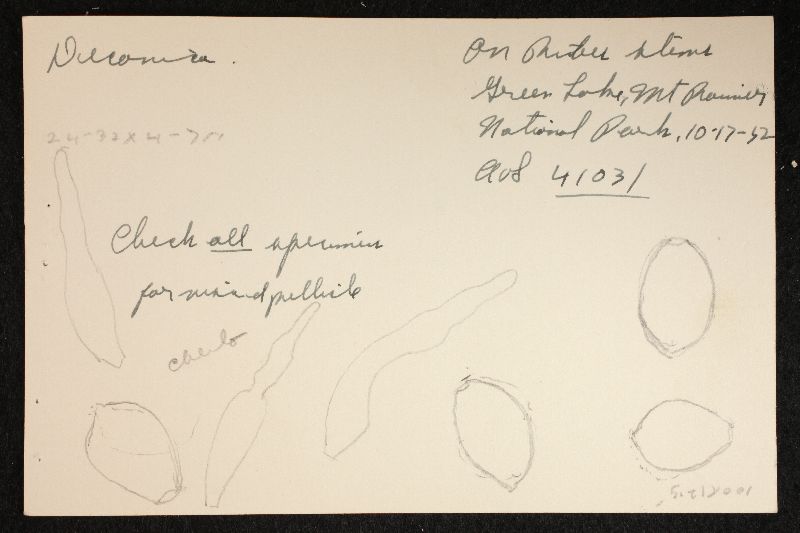 Deconica.
On Rubus stems
Green Lake, Mt Rainier
National Park, 10-17-52
AHS 41031
24-32 x 4-7 μ
Check all specimens
for viscid pellicle
cheilo